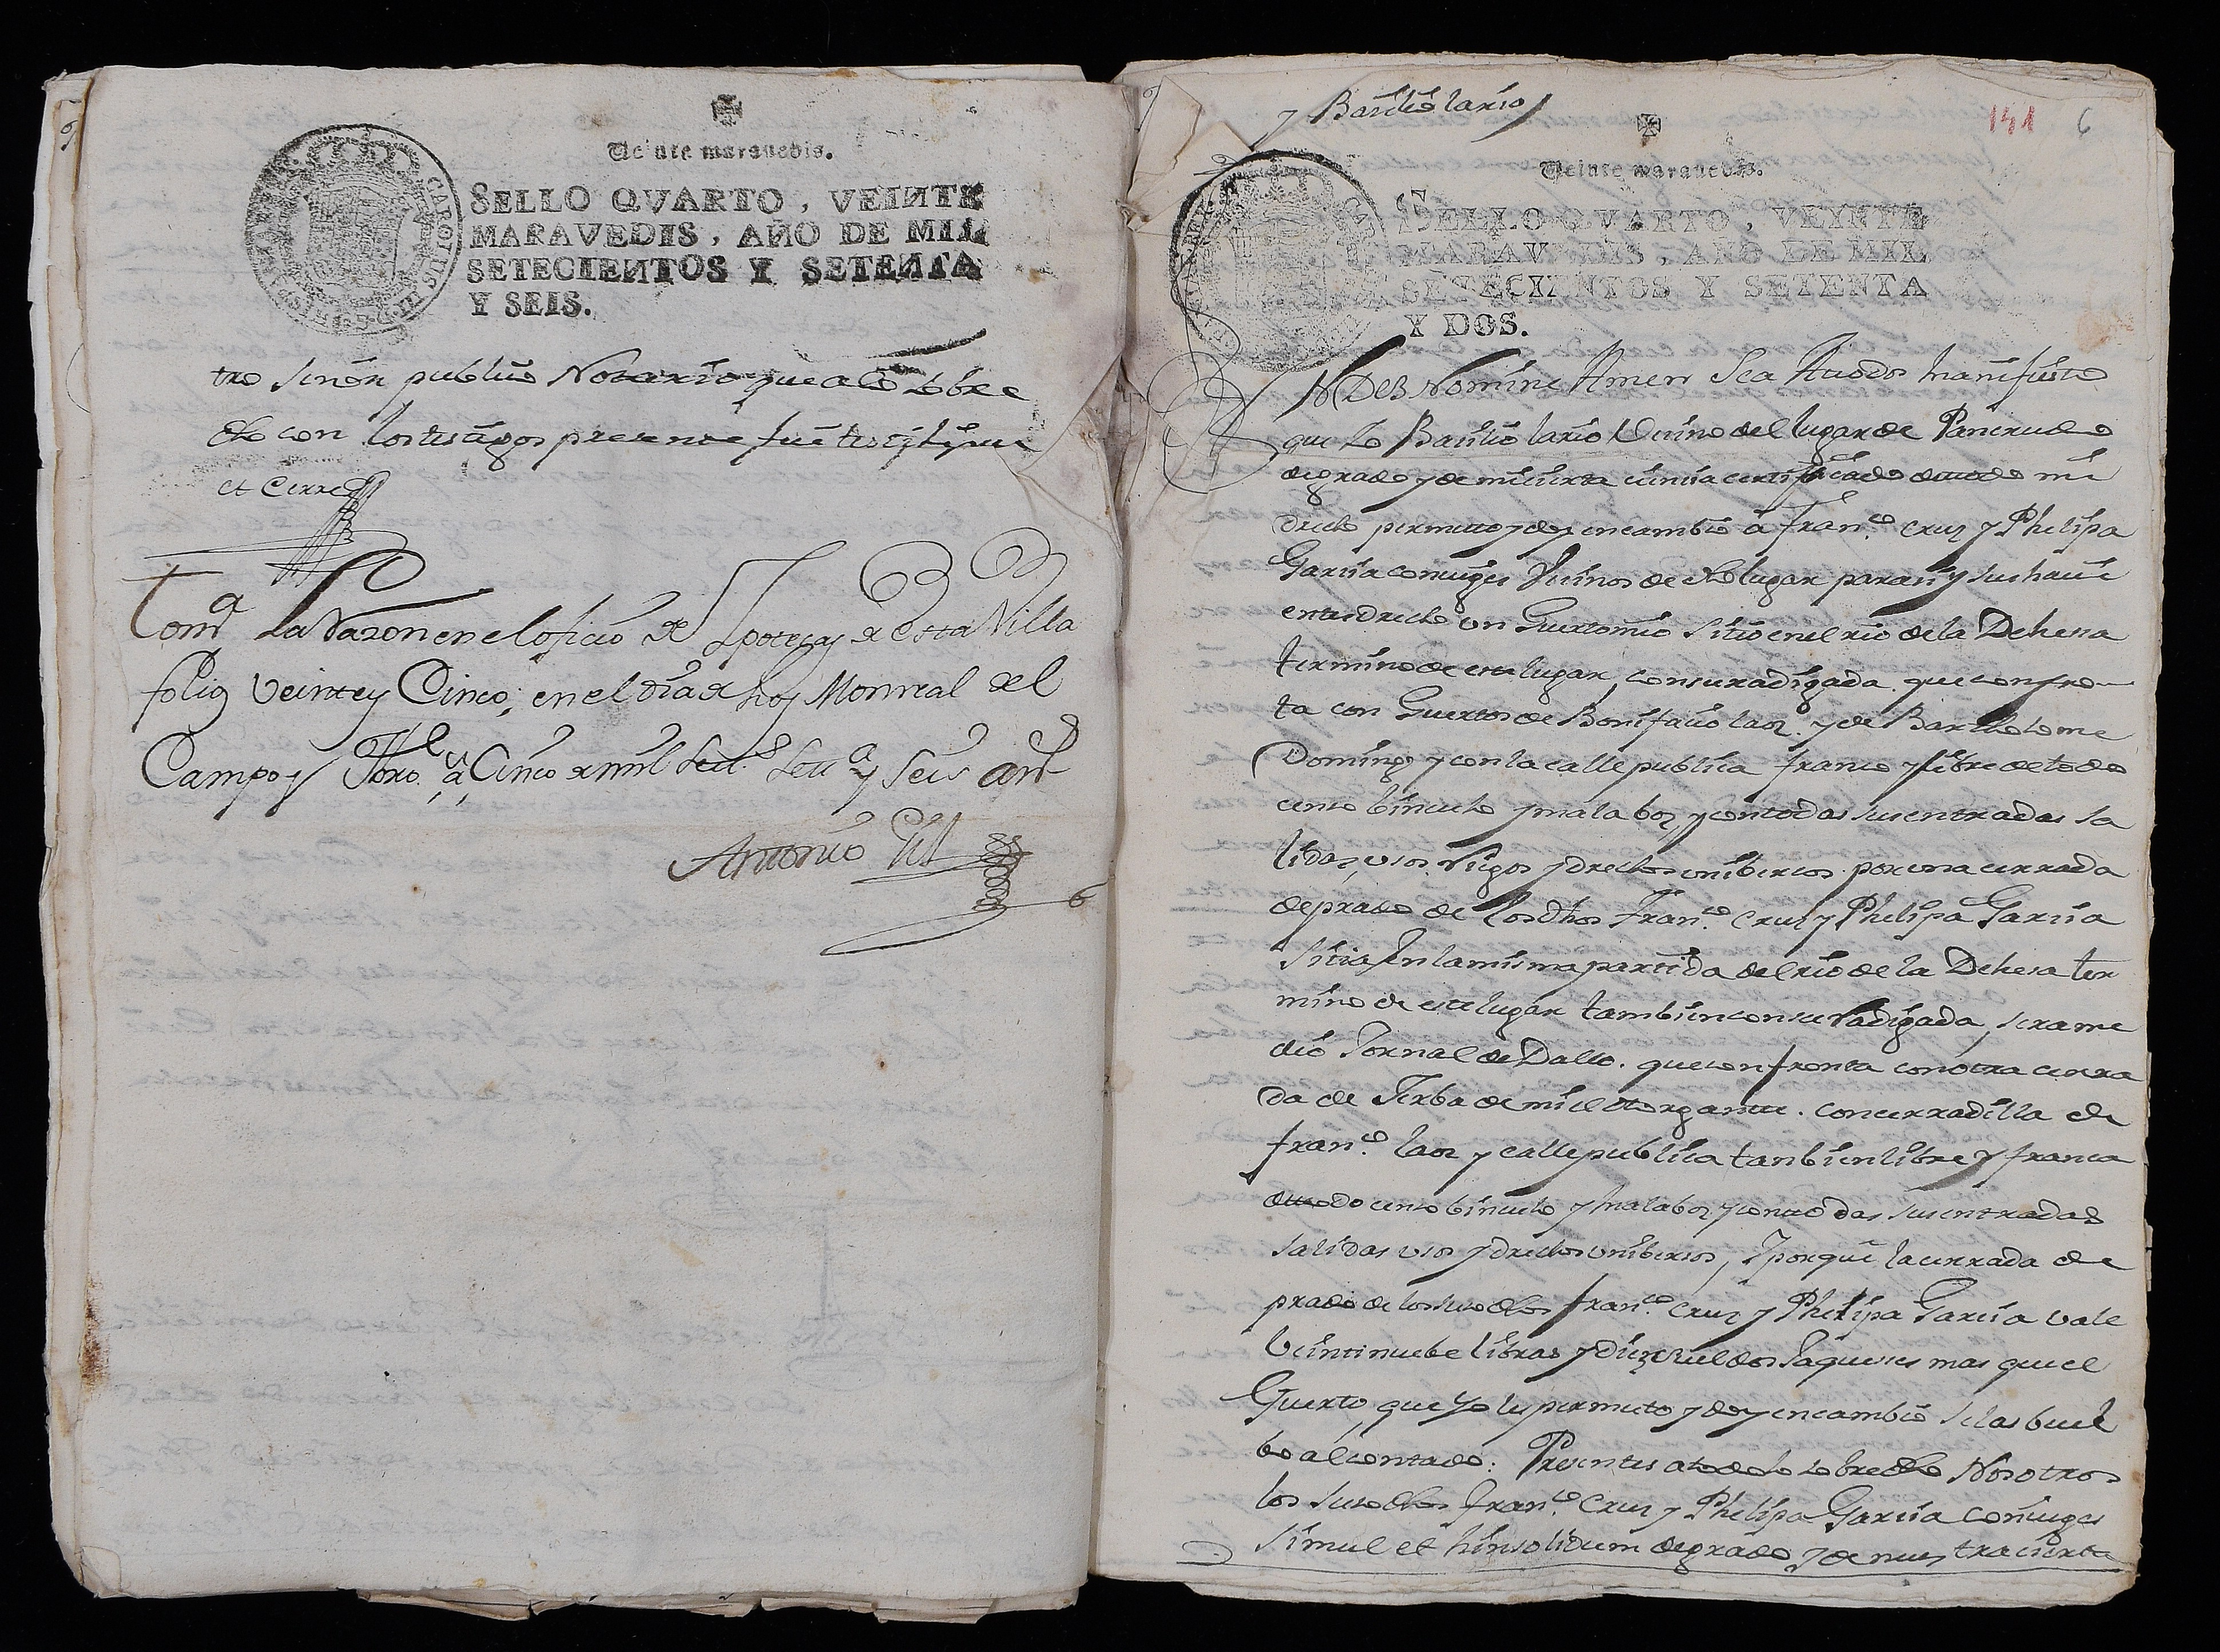 Veinte maravedis.
SELLO QVARTO, VEINTE
MARAVEDIS, AÑO DE MIL
SETECIENTOS Y SETENTA
Y SEIS.
publico Notario que a lo sobre
dho con los testigos presente fue testifique
et Cerre
Tomd. la Razon en el oficio de Ipotecas de esta Villa
folio veinte y Cinco, en el dia de hoy Monreal del
Campo y a Cinco de mil Setta. y Seis
Antonio Gil
6
y Basilio lario
141 6
Veinte maravedis.
SELLO QVARTO, VEYNTE
MARAVEDIS, AÑO DE MIL
SETECIENTOS Y SETENTA
Y DOS.
IN DEI Nomine Amen Sea Atodos manifiesto
que Yo Basilio lario Vecino del lugar de Pancrudo
de grado y de mi cierta ciencia certificado de todo mi
drecho permuto y doy en cambio á Franco. Cruz y Phelipa
Garcia conuiges Vecinos de dho lugar para si y sus havi
entes drecho un Guerto mio sitio en el rio de la Dehesa
termino de este lugar, con su radigada que confron
ta con Guertos de Bonifacio laoz. y de Bartholome
Domingo y con la calle publica franco y libre de todo
censo binculo y mala boz y con todas sus entradas sa
lidas, usos. Riegos y drechos unibersos por una cerrada
de prado de los dhos Franco. Cruz y Phelipa Garcia
Sitia En la misma partida del rio de la Dehesa ter
mino de este lugar tambien con su Radigada, sera me
dio Jornal de Dallo. que confronta con otra cerra
da de Yerba de mi el otorgante. con cerradilla de
Franco. laoz y calle publica tanbien libre y franca
de todo censo binculo y mala boz y con todas sus entradas
salidas usos y drechos unibersos, Y porque la cerrada de
prado de los susodhos Franco. Cruz y Phelipa Garcia vale
Veintinuebe libras y diez sueldos Jaqueses mas que el
Guerto que Yo les permuto y doy en cambio se las buel
bo al contado: Presentes a todo lo sobredho Nosotros
los susodhos Franco. Cruz y Phelipa Garcia coniuges
simul et hinsolidum de grado y de nuestra cierta